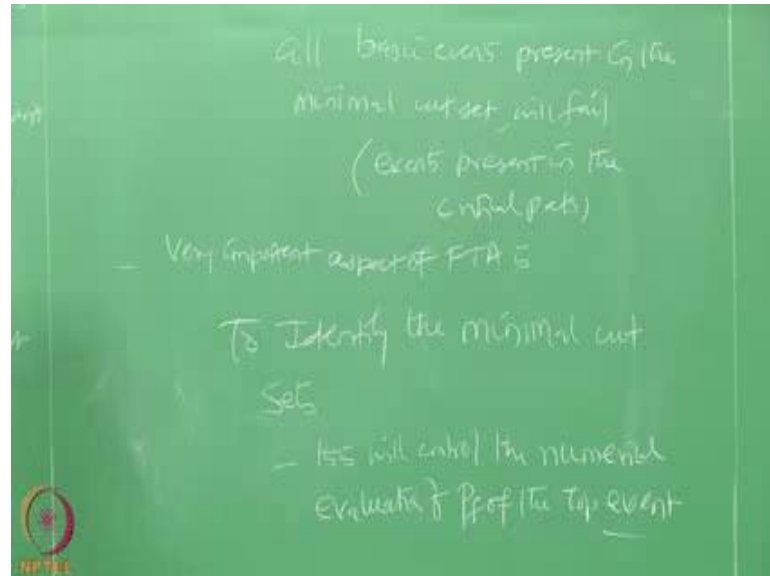 all basic events present in the
minimal cut set, will fail
(events present in the
critical path)
- Very important aspect of FTA is
To Identify the minimal cut
sets
- this will control the numerical
evaluation of Pf of the Top event
NPTEL